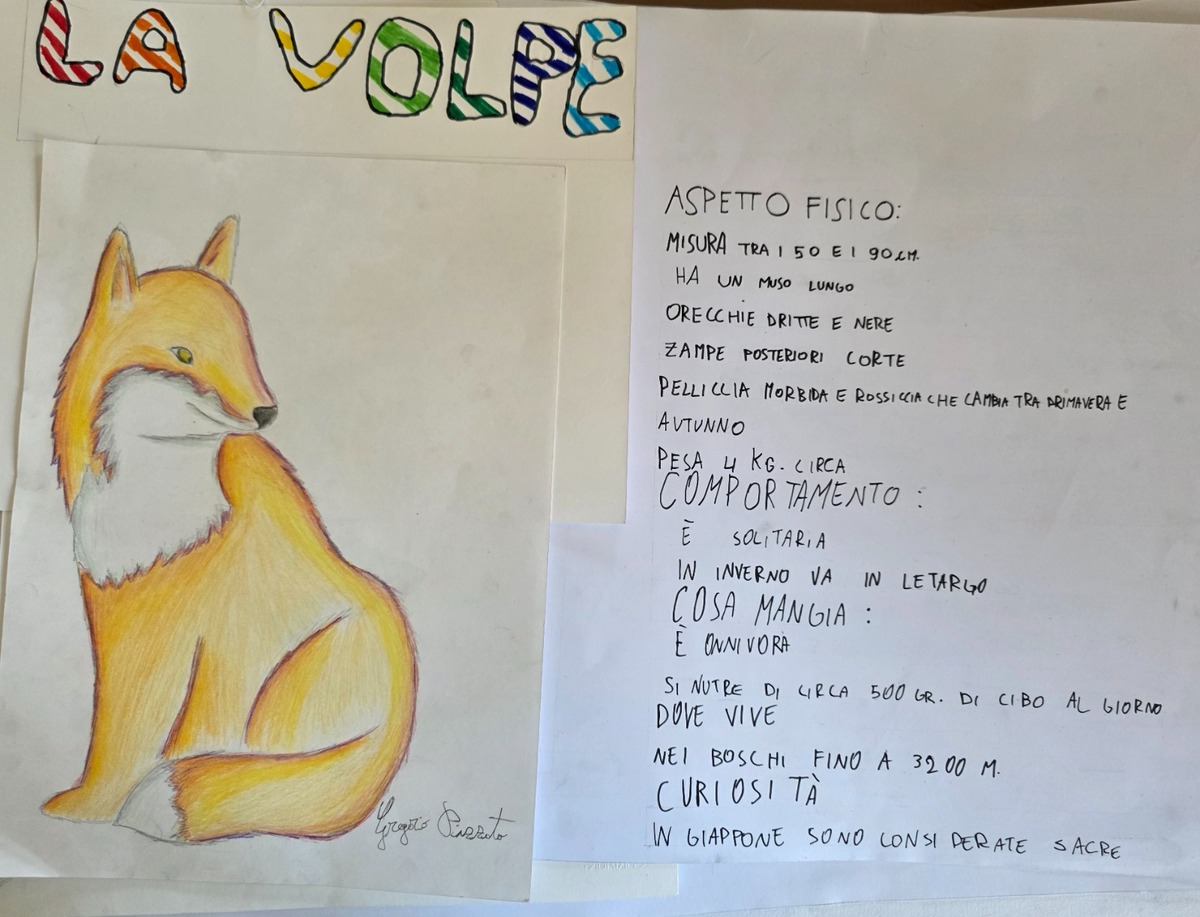 LA VOLPE
ASPETTO FISICO:
MISURA TRA I 50 E I 90 CM.
HA UN MUSO LUNGO
ORECCHIE DRITTE E NERE
ZAMPE POSTERIORI CORTE
PELLICCIA MORBIDA E ROSSICCIA CHE CAMBIA TRA PRIMAVERA E
AUTUNNO
PESA 4 KG. CIRCA
COMPORTAMENTO :
È SOLITARIA
IN INVERNO VA IN LETARGO
COSA MANGIA :
È ONNIVORA
SI NUTRE DI CIRCA 500 GR. DI CIBO AL GIORNO
DOVE VIVE
NEI BOSCHI FINO A 3200 M.
CURIOSITÀ
IN GIAPPONE SONO CONSIDERATE SACRE
Gregorio Pizzato